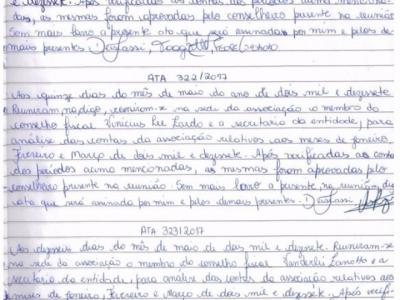 e dezesete. Após verificadas as contas dos períodos acima menciona-
das, as mesmas foram aprovadas pelo conselheiro presente na reunião
Sem mais lavro a presente ata que será assinada por mim e pelos de-
mais presentes.
ATA 322/2017
Aos quinze dias do mês de maio do ano de dois mil e dezesete
Reuniram, na digo, reuniram-se na sede da associação o membro do
conselho fiscal Vinicius e a secretaria da entidade, para
análise das contas da associação relativos aos meses de Janeiro,
Fevereiro e Março de dois mil e dezesete. Após verificadas as contas
dos períodos acima mencionadas, as mesmas foram aprovadas pelo
conselheiro presente na reunião. Sem mais lavro a presente na reunião, di
ata que será assinada por mim e pelos demais presentes.
ATA 323/2017
Aos dezeseis dias do mês de maio de dois mil e dezesete. Reuniram-se
na sede da associação o membro do conselho fiscal Vanderlei Zanotto e a
secretaria da entidade, para análise das contas da associação relativos aos
meses de Janeiro, Fevereiro e Março de dois mil e dezesete. Após verifi-